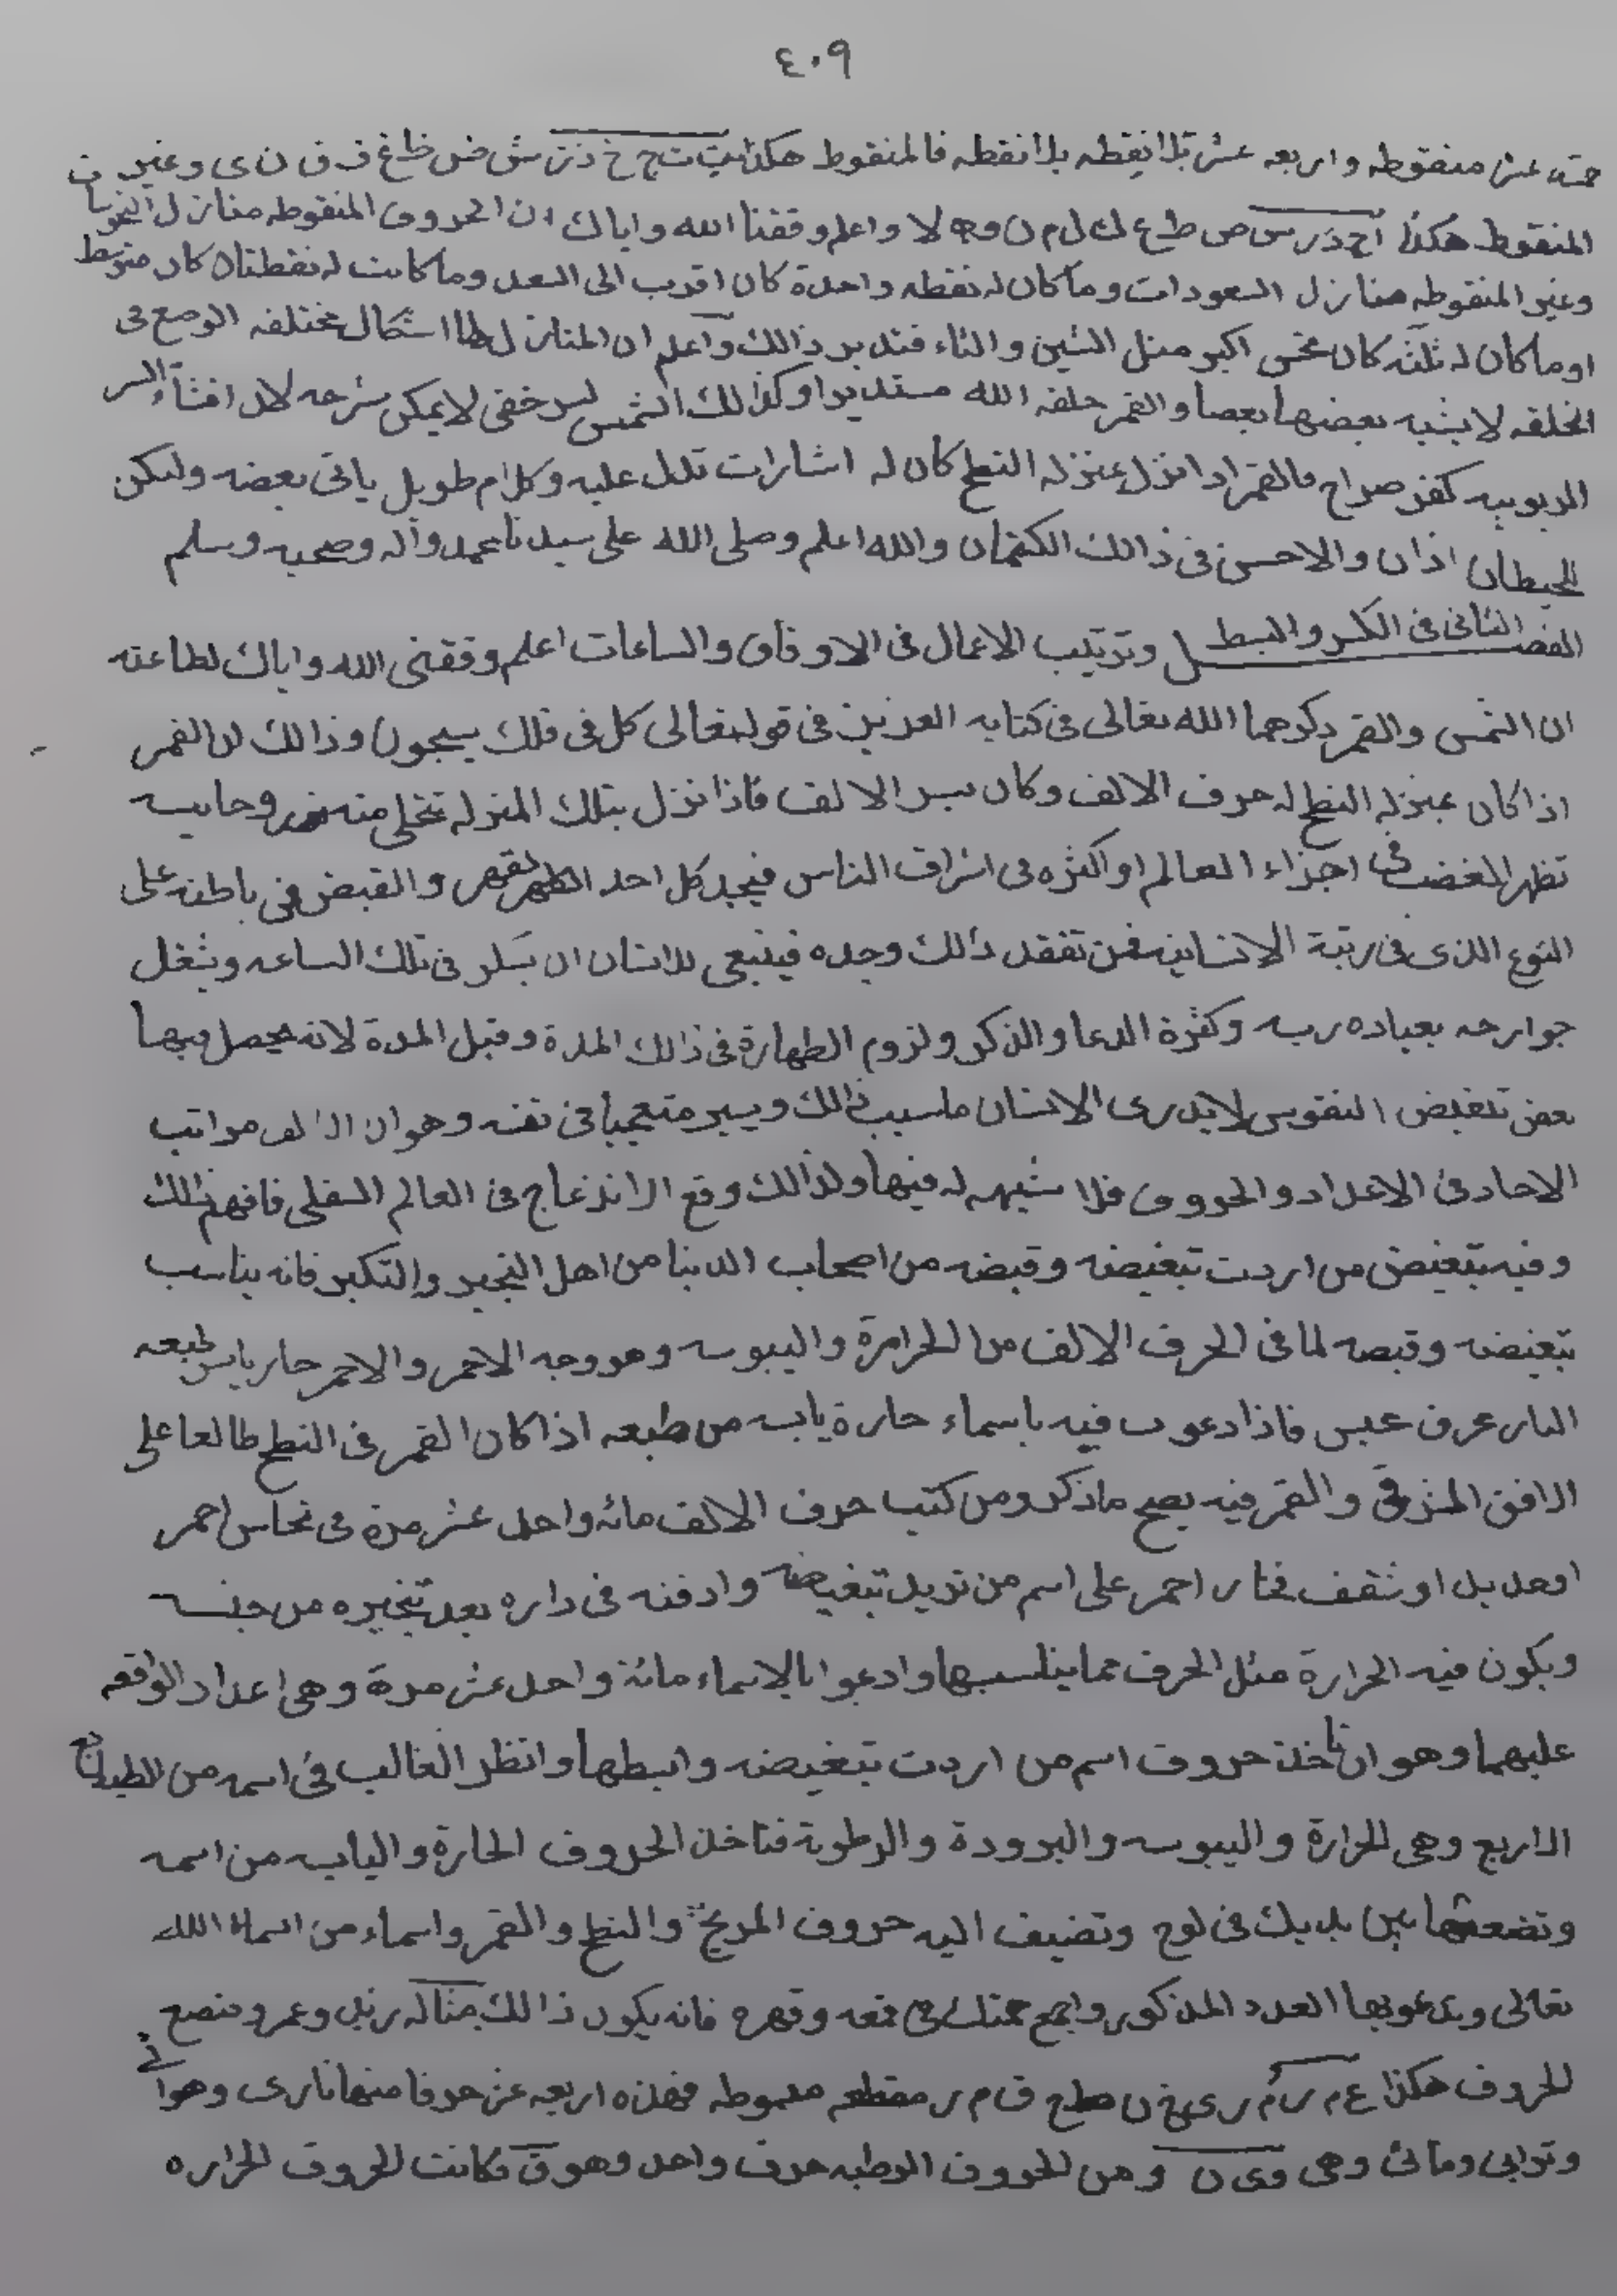 ٤٠٩
عشر منقوطه واربعه عشر بلا نقطه فالمنقوط هكذا ب ت ث ج خ ذ ز ش ض ظ غ ف ق ن ى وغير
المنقوط هكذا ا ح د ر س ص ط ع ك ل م ن و ه لا واعلم وفقنا الله واياك ان الحروف المنقوطه منازل
وغير المنقوطه منازل السعودات وما كان له نقطه واحدة كان اقرب الى السعد وما كانت له نقطتان كان متوسط
او ما كان له ثلثه كان نحس اكبر مثل الشين والثاء فتدبر ذالك واعلم ان المنازل لها اشكال مختلفه الوضع فى
الخلقه لا يشبه بعضها بعضا والقمر خلقه الله مستديرا وكذالك الشمس لسر خفى لا يمكن شرحه لان افشاء السر
الربوبيه كفر صراح فالقمر اذا نزل بمنزله النطح كان له اشارات تدل عليه وكلام طويل ياتى بعضه ولكن
للحيطان اذان والاحسن فى ذالك الكتمان والله اعلم وصلى الله على سيدنا محمد وآله وصحبه وسلم
الفصل الثانى فى الكسر والبسط وترتيب الاعمال فى الاوفاق والساعات اعلم وفقنى الله واياك لطاعته
ان الشمس والقمر ذكرهما الله تعالى فى كتابه العزيز فى قوله تعالى كل فى فلك يسبحون وذالك لان القمر
اذا كان بمنزله النطح له حرف الالف وكان سر الالف فاذا نزل بتلك المنزله تخلى منه روحانيه
تظهر الغضب فى اجزاء العالم او اكثره فى اشراف الناس فيجد كل احد القهر والقبض فى باطنه على
النوع اللذى فى رتبة الانسانيه فمن تفقد ذالك وجده فينبغى للانسان ان فى تلك الساعه ويشغل
جوارحه بعباده ربه وكثرة الدعا والذكر ولزوم الطهارة فى ذالك المدة وقبل المدة لانه يحصل فيها
بعض تبغيض النفوس لا يدرى الانسان ما سبب ذالك ويسير متعجبا فى نفسه وهو ان الالف مراتب
الاحاد فى الاعداد والحروف فلا شبيهه له فيها ولذالك وقع الانزعاج فى العالم السفلى فافهم ذلك
وفيه تبغيض من اردت تبغيضه وقبضه من اصحاب الدنيا من اهل التجبر والتكبر فانه يناسب
تبغيضه وقبضه لما فى الحرف الالف من الحرارة واليبوسه وهو وجه الاحمر والاحمر حار يابس طبعه
النار فاذا دعوت فيه باسماء حارة يابسه من طبعه اذا كان القمر فى النطح طالعا على
الافق الشرقى والقمر فيه يصح ما ذكر ومن كتب حرف الالف مائه واحد عشر مرة فى نحاس احمر
او حديد او شقف فخار احمر على اسم من تريد تبغيضه وادفنه فى داره بعد تبخيره من جنسه
ويكون فيه الحرارة مثل الحرف مما يناسبها وادعوا بالاسماء مائة واحد عشر مرة وهى اعداد الواقعه
عليهما وهو ان تاخذ حروف اسم من اردت تبغيضه وابسطها وانظر الغالب فى اسمه من الطبايع
الاربع وهى الحرارة واليبوسه والبرودة والرطوبة فتاخذ الحروف الحارة واليابسه من اسمه
وتضعها بين يديك فى لوح وتضيف اليه حروف المريخ والنطح والقمر واسماء من اسماء الله
تعالى وتدعوبها العدد المذكور واجمع همتك فى قمعه وقهره فانه يكون ذالك مثاله زيد وعمرو فتضع
الحروف هكذا ع م ر م ر ى خ ن ط ح ق م ر مقطعه مبسوطه فهذه اربعه عشر حرفا منها نارى وهوائى
وترابى ومائى وهى و ى ن ومن الحروف الرطبه حرف واحد وهو ق فكانت الحروف الحراره